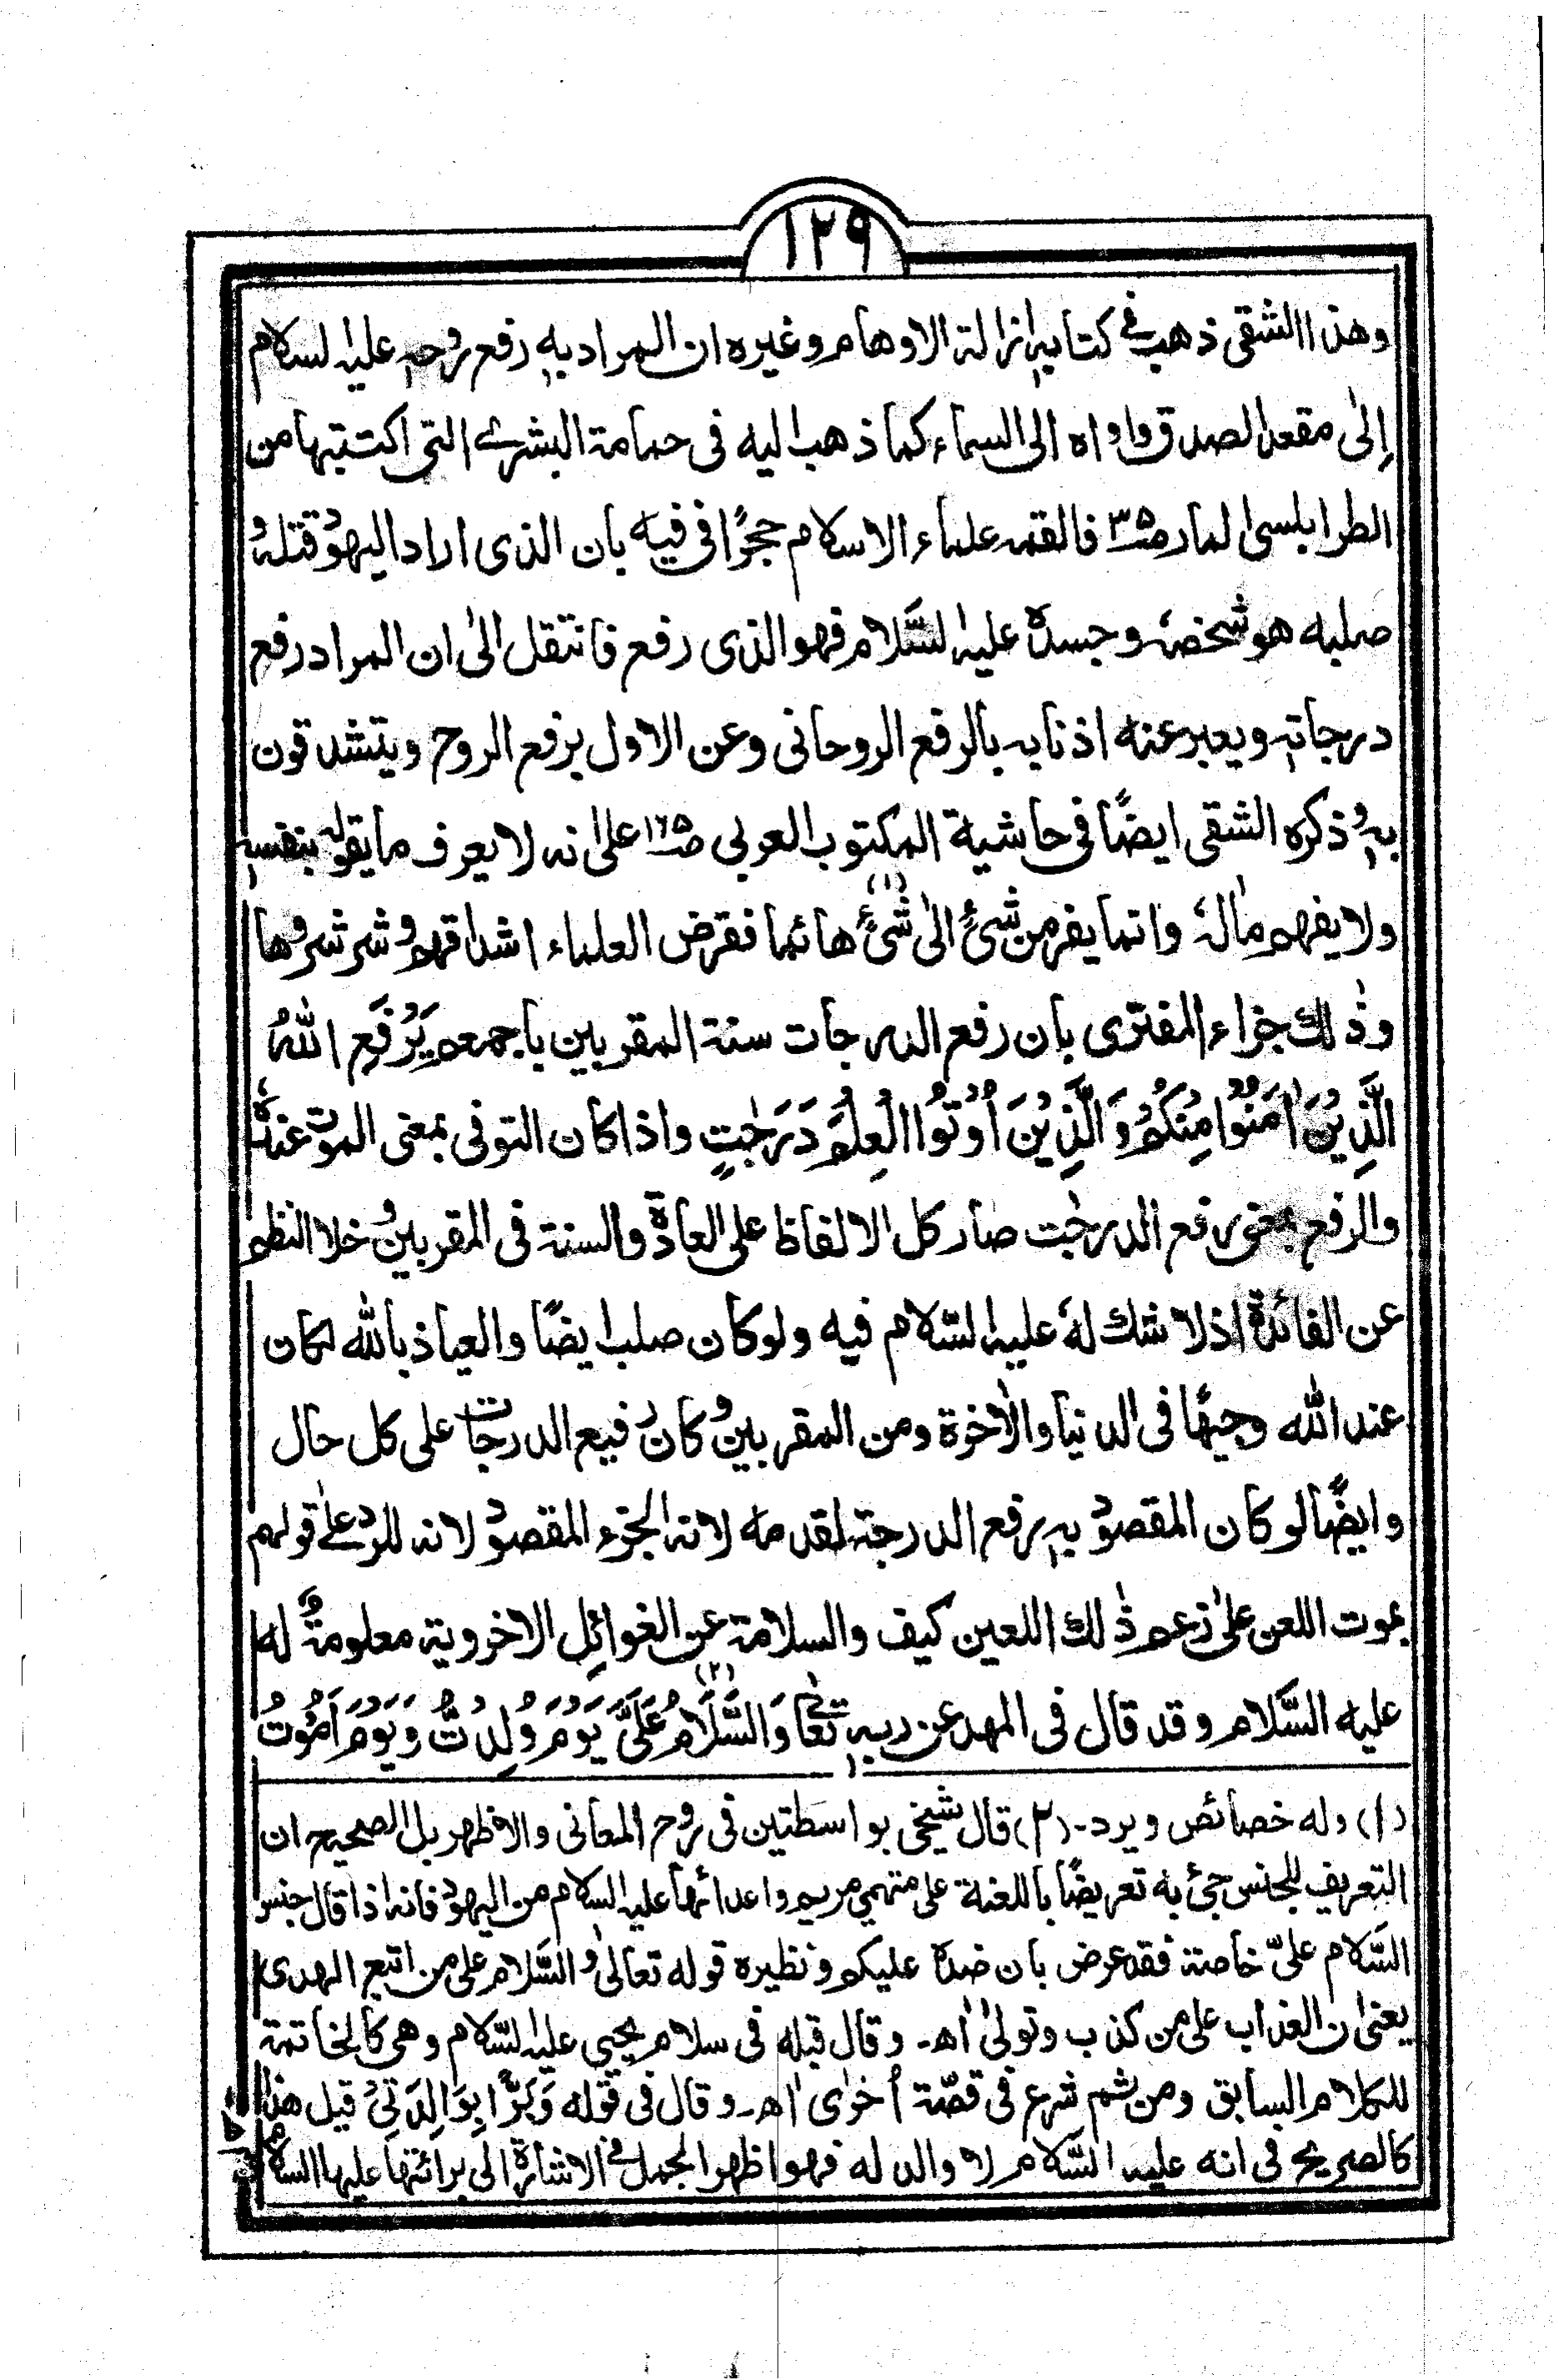 ١٢٩
وهذا الشقى ذهب فى كتابه ازالة الاوهام وغيره ان المراد به رفع روحه عليه السلام
إلى مقعد الصدق واواه الى السماء كما ذهب اليه فى حمامة البشرے التى اكتتبها من
الطرابلسى لمار ص٣٥ فالقمه علماء الاسلام حجرًا فى فيه بان الذى اراد اليهود قتله و
صلبه هو شخصه وجسده عليه السَّلام فهو الذى رفع فانتقل الىٰ ان المراد رفع
درجاته ويعبر عنه اذنابه بالرفع الروحانى وعن الاول برفع الروح ويتشدقون
به وذكره الشقى ايضًا فى حاشية المكتوب العربى ص١٢٥ على انه لا يعرف ما يقوله بنفسه
ولا يفهم مآلهٗ وانما يفر من شئٍ الىٰ شئٍ (١) هائما فقرض العلماء اشداقهم وشرشروها
وذٰلك جزاء المفترى بان رفع الدرجات سنة المقربين باجمعهم يَرْفَعِ اللهُ
الَّذِيْنَ اٰمَنُوْا مِنْكُمْ وَالَّذِيْنَ اُوْتُوا الْعِلْمَ دَرَجٰتٍ واذا كان التوفى بمعنى الموت عندهٗ
والرفع بمعنى رفع الدرجٰت صار كل الالفاظ على العادة والسنة فى المقربين وخلا النظم
عن الفائدة اذ لا شك لهٗ عليه السّلام فيه ولو كان صلب ايضًا والعياذ بالله لكان
عند الله وجيهًا فى الدنيا والاٰخرة ومن المقربين وكان رفيع الدرجات على كل حال
وايضًا لو كان المقصود به رفع الدرجة لقدمه لانه الجزء المقصود لانه للرد علىٰ قولهم
بموت اللعن علىٰ زعم ذٰلك اللعين كيف والسلامة عن الغوائل الاخروية معلومةٌ له
عليه السَّلام وقد قال فى المهد عن ربه تعالىٰ (٢) وَالسَّلَامُ عَلَىَّ يَوْمَ وُلِدْتُّ وَيَوْمَ اَمُوْتُ
(١) وله خصائص ويرد-(٢) قال شيخى بواسطتين فى روح المعانى والاظهر بل الصحيح ان
التعريف للجنس جئ به تعريضًا باللعنة على متهمى مريم واعدائها عليه السلام من اليهود فانه اذا قال جنس
السَّلام علىّ خاصة فقد عرض بان ضدهٗ عليكم ونظيره قوله تعالىٰ والسَّلام على من اتبع الهدى
يعنى ان العذاب على من كذب وتولىٰ اھ۔ وقال قبله فى سلام يحيى عليه السّلام وهى كالخاتمة
للكلام السابق ومن ثم شرع فى قصّة أخرٰى اھ۔ وقال فى قوله وَبَرًّا بِوَالِدَتِىْ قيل هذا
كالصريح فى انه عليه السَّلام لا والد له فهو اظهر الجمل فى الاشارة الى برائتها عليها السلام